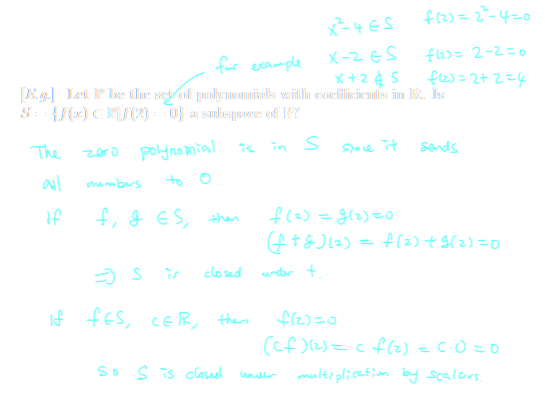 x²-4 ∈ S f(2) = 2²-4=0
for example x-2 ∈ S f(2)= 2-2=0
x+2 ∉ S f(2)=2+2=4
[E.g.] Let P be the set of polynomials with coefficients in R. Is
S = {f(x) ∈ P|f(2) = 0} a subspace of P?
The zero polynomial is in S since it sends
all numbers to 0.
If f, g ∈ S, then f(2) = g(2)=0
(f+g)(2) = f(2)+g(2)=0
⇒ S is closed under +.
If f∈S, c∈R, then f(2)=0
(cf)(2) = c f(2) = c·0 = 0
So S is closed under multiplication by scalars.